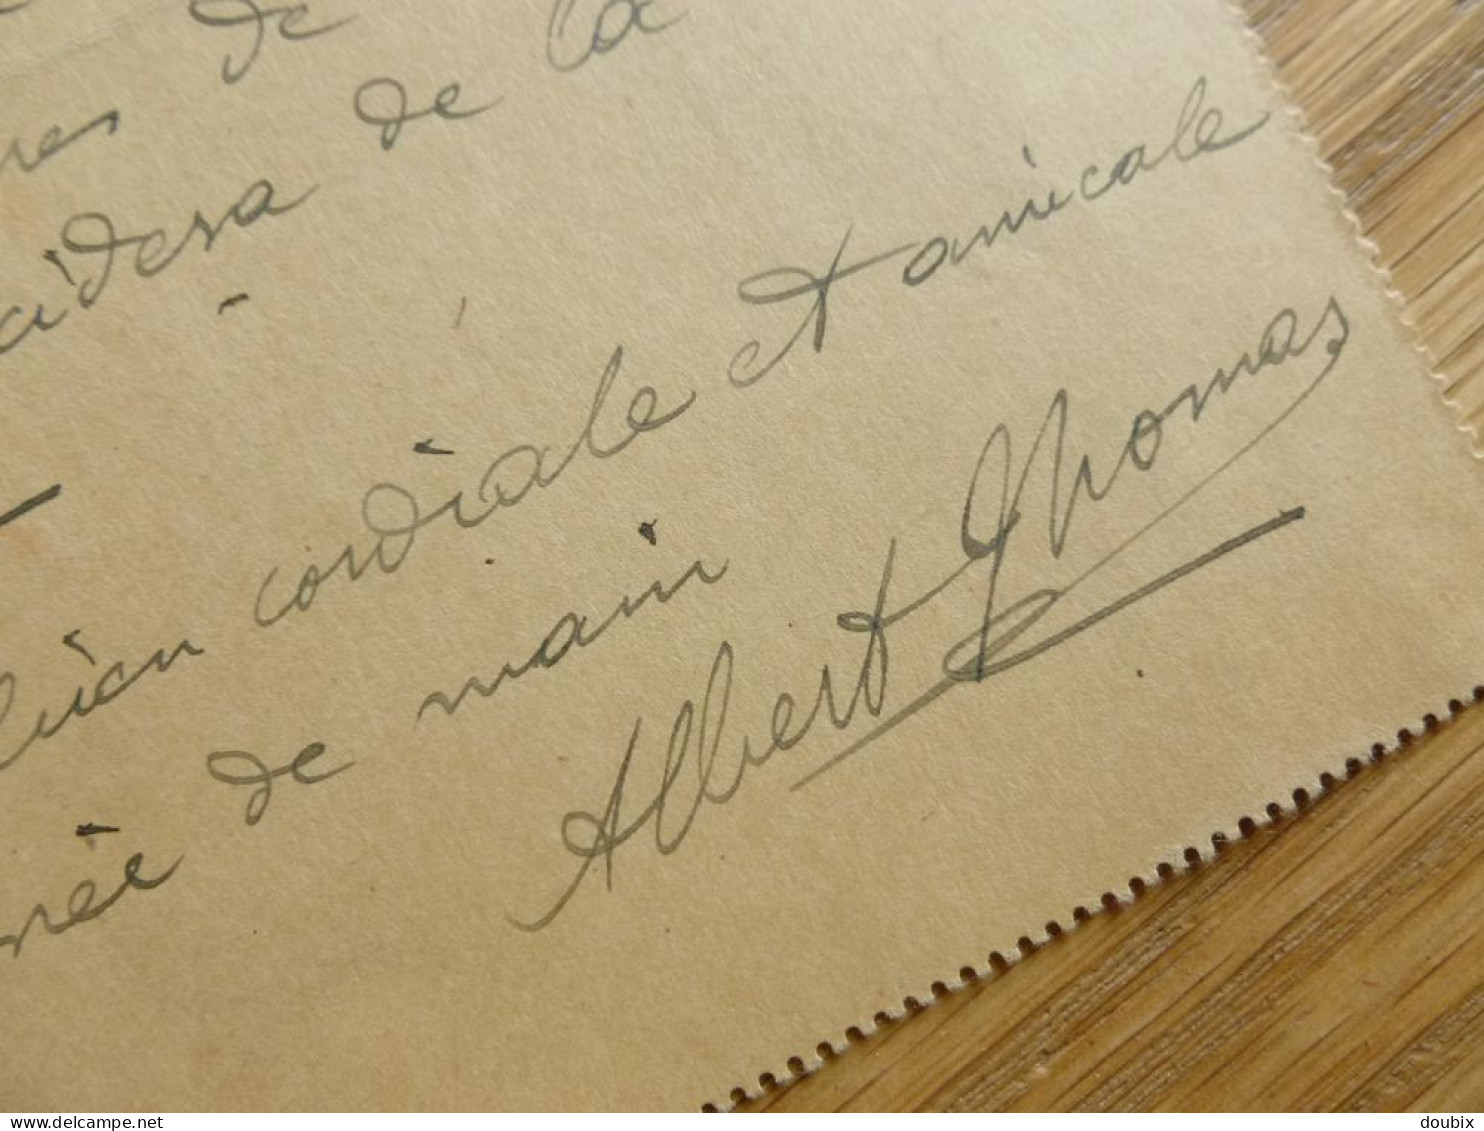 de
de la
aidera
bien cordiale et amicale
de main
Albert Thomas
delcampe.net
doubix